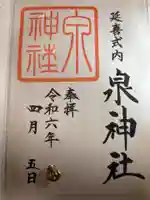 延喜式内
泉神社
泉
神社
奉拝
令和六年
四月
五日